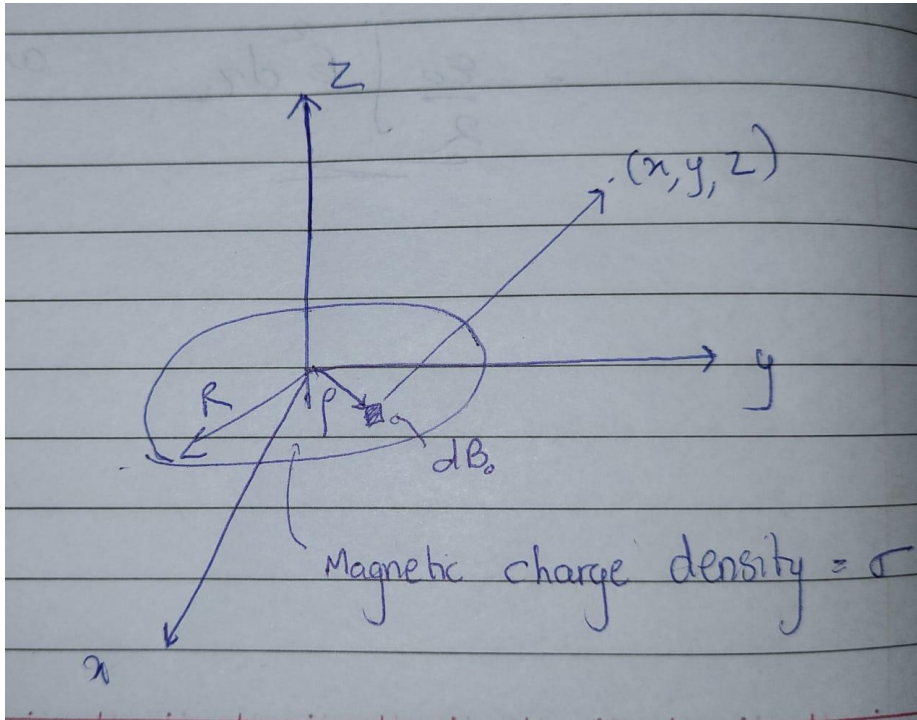 Z
(x, y, z)
y
R
ρ
dB₀
Magnetic charge density = σ
x